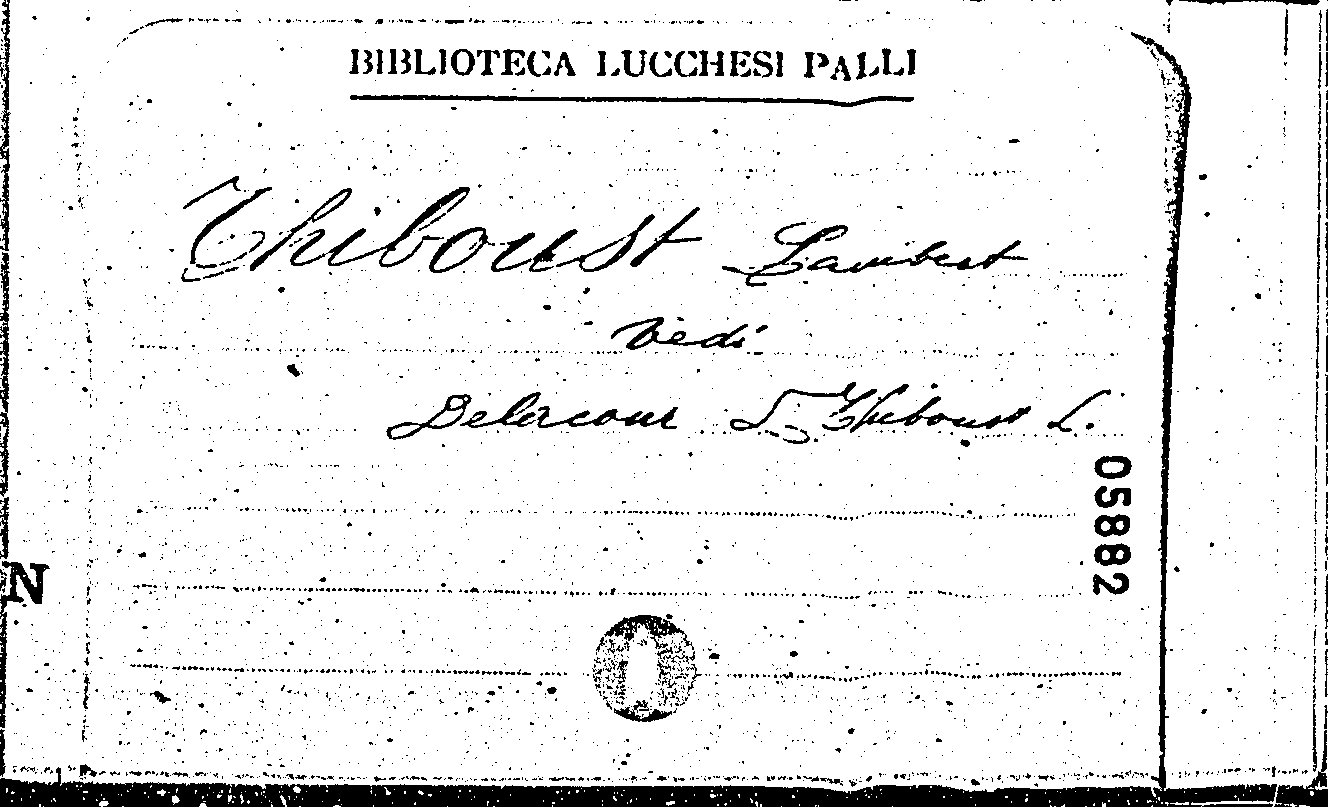 BIBLIOTECA LUCCHESI PALLI
Thiboust Lambert
vedi
Delacour Thiboust L.
05882
N